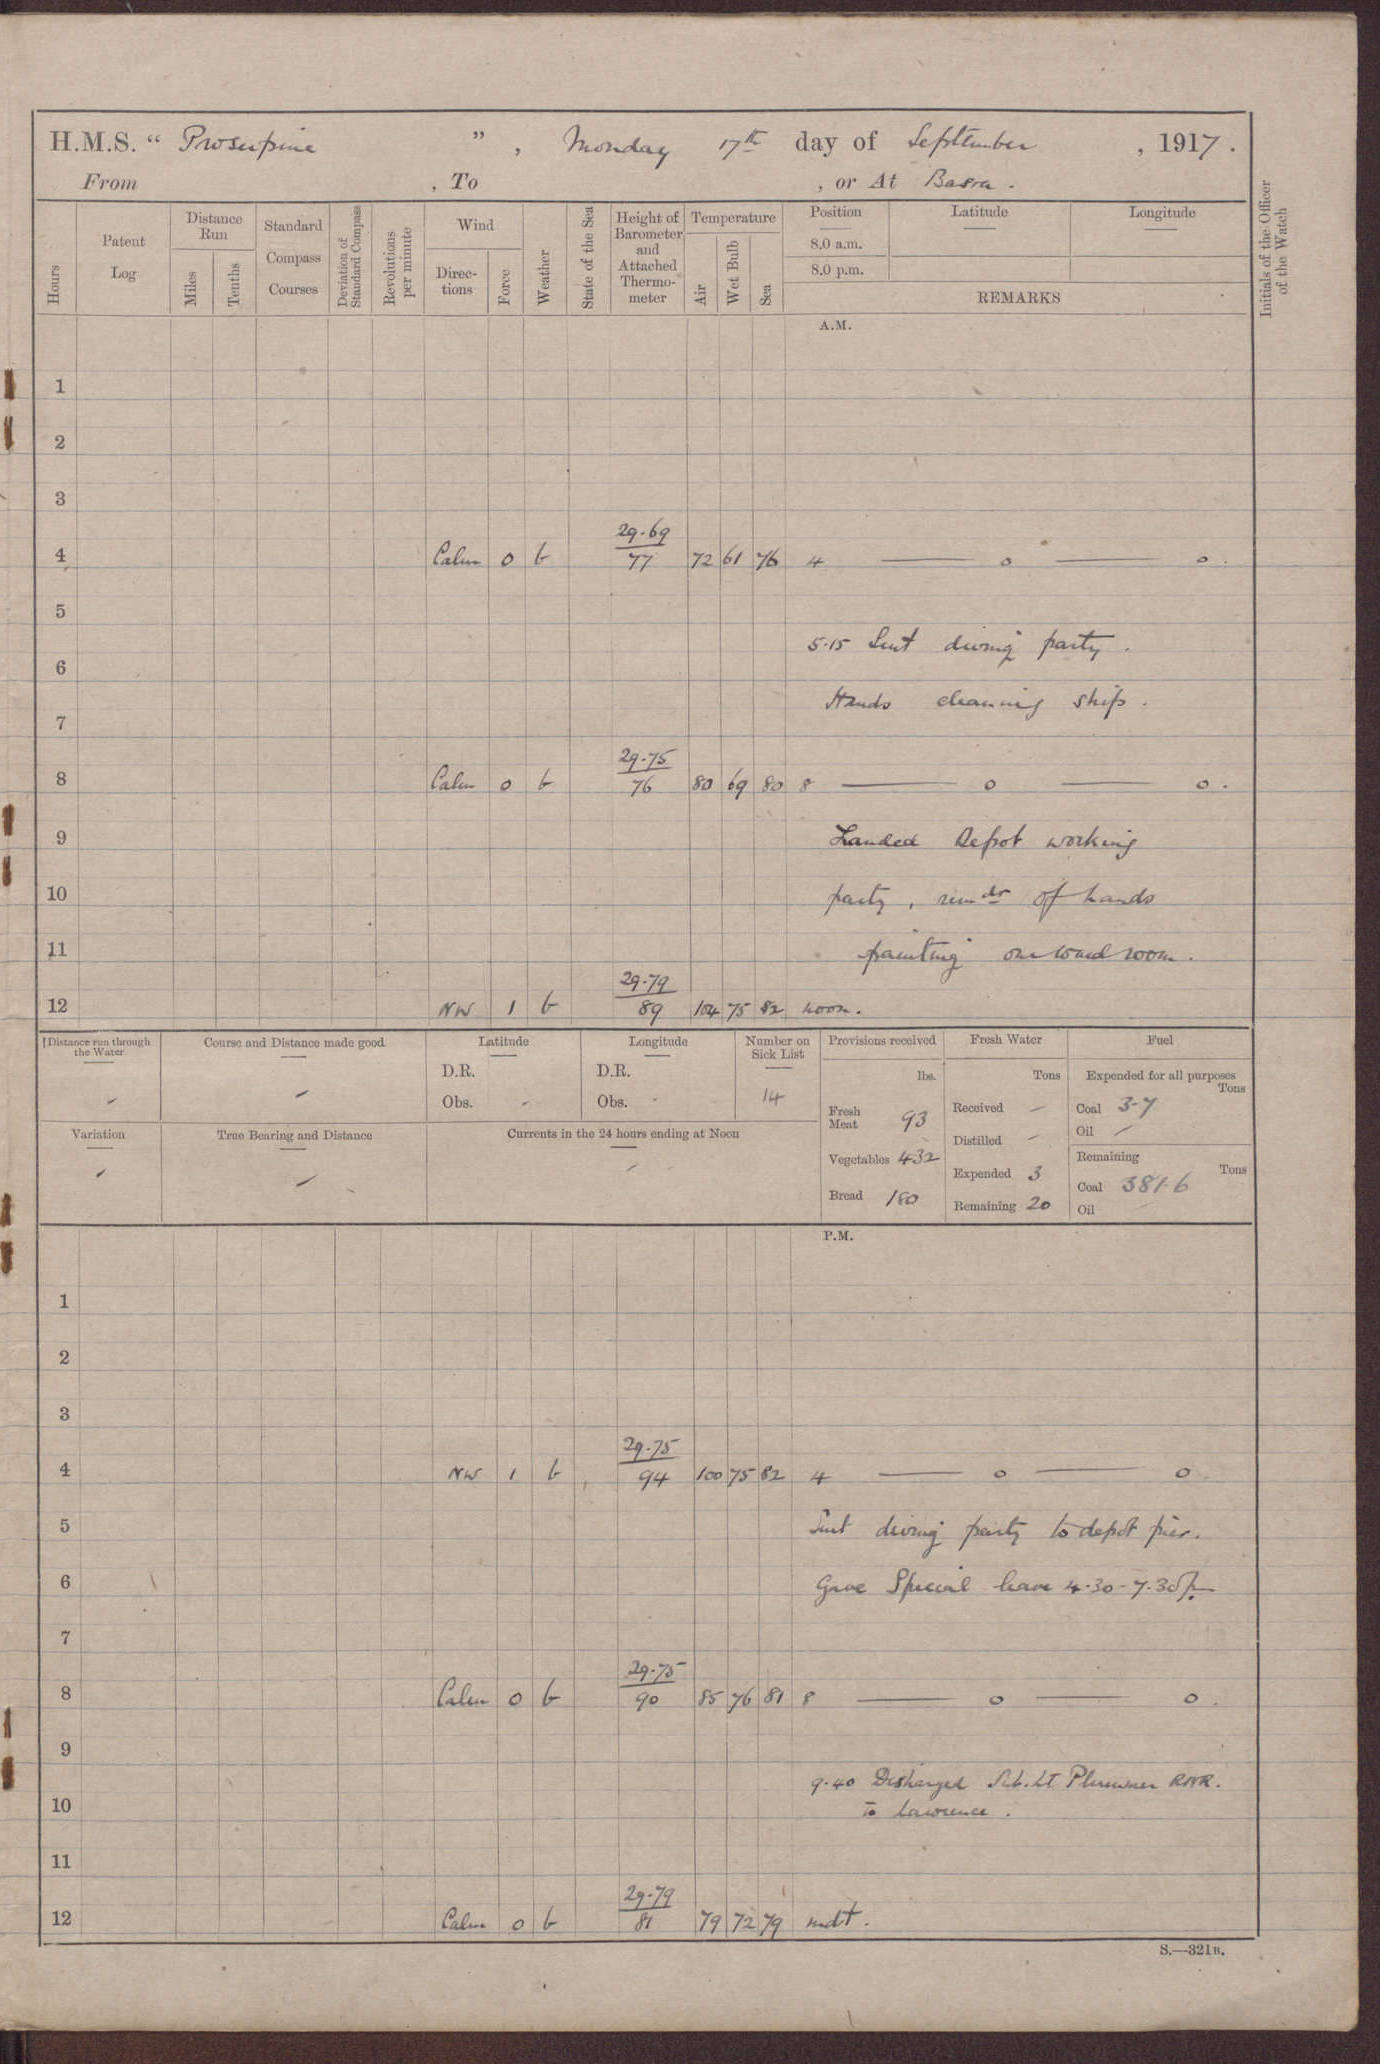 H.M.S. “ Proserpine ” , Monday 17th day of September , 1917 .
From , To , or At Basra .
Hours
Patent Log
Distance Run
Miles
Tenths
Standard Compass Courses
Deviation of Standard Compass
Revolutions per minute
Wind
Direc-tions
Force
Weather
State of the Sea
Height of Barometer and Attached Thermo-meter
Temperature
Air
Wet Bulb
Sea
Position
8.0 a.m.
8.0 p.m.
Latitude
Longitude
REMARKS
Initials of the Officer of the Watch
A.M.
1
2
3
29.69
4 Calm 0 b 77 72 61 76 4 —— o —— o .
5
5.15 Sent diving party .
6
Hands cleaning ship .
7
29.75
8 Calm 0 b 76 80 69 80 8 —— o —— o .
9 Landed Depot working
10 party , remdr of hands
11 painting on ward room .
29.79
12 NW 1 b 89 104 75 82 noon .
Distance run through the Water
Course and Distance made good
Latitude
D.R.
Obs.
Longitude
D.R.
Obs.
Number on Sick List
14
Provisions received
lbs.
Fresh Meat 93
Vegetables 432
Bread 180
Fresh Water
Tons
Received –
Distilled –
Expended 3
Remaining 20
Fuel
Expended for all purposes
Tons
Coal 3.7
Oil –
Remaining
Tons
Coal 381.6
Oil
Variation
True Bearing and Distance
Currents in the 24 hours ending at Noon
P.M.
1
2
3
29.75
4 NW 1 b 94 100 75 82 4 —— o —— o
5 Sent diving party to depot pier .
6 Gave Special leave 4.30 - 7.30 p.
7
29.75
8 Calm 0 b 90 85 76 81 8 —— o —— o .
9
9.40 Discharged Sub.Lt Plummer RNR.
10 to Lawrence .
11
29.79
12 Calm 0 b 81 79 72 79 mdt .
S.—321B.